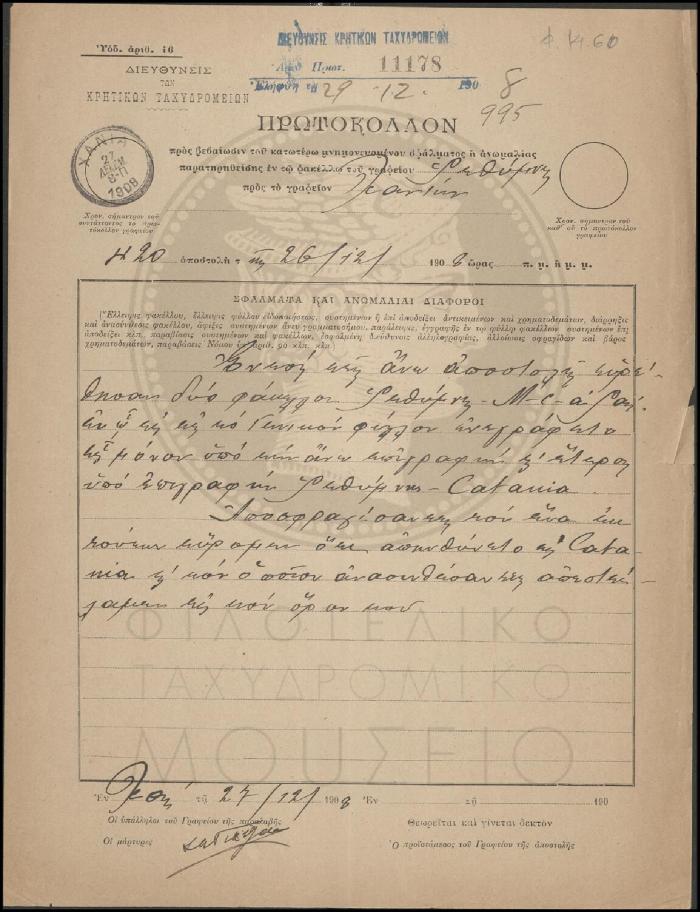 Ὑπόδ. ἀριθ. 16
ΔΙΕΥΘΥΝΣΙΣ
ΤΩΝ
ΚΡΗΤΙΚΩΝ ΤΑΧΥΔΡΟΜΕΙΩΝ
ΔΙΕΥΘΥΝΣΙΣ ΚΡΗΤΙΚΩΝ ΤΑΧΥΔΡΟΜΕΙΩΝ
Ἀριθ. Πρωτ. 11178
29 - 12. 190 8
995
ΠΡΩΤΟΚΟΛΛΟΝ
πρὸς βεβαίωσιν τοῦ κατωτέρω μνημονευομένου σφάλματος ἢ ἀνωμαλίας
παρατηρηθείσης ἐν τῷ φακέλλῳ τοῦ γραφείου Ρεθύμνης
πρὸς τὸ γραφεῖον Χανίων
ΧΑΝΙΑ
27
ΔΕΚΕΜ
1908
Χρον. σήμαντρον τοῦ
συντάττοντος τὸ πρω-
τόκολλον γραφείου
Χρον. σήμαντρον τοῦ
καθ' οὗ τὸ πρωτόκολλον
γραφείου
420 ἀποστολὴ τῆς 26/12/ 190 8 ὥρας π. μ. ἢ μ. μ.
ΣΦΑΛΜΑΤΑ ΚΑΙ ΑΝΩΜΑΛΙΑΙ ΔΙΑΦΟΡΟΙ
(Ἔλλειψις φακέλλου, ἔλλειψις φύλλου εἰδοποιήσεως, συστημένου ἢ ἐπὶ ἀποδείξει ἀντικειμένων καὶ χρηματοδεμάτων, διάρρηξις
καὶ ἀνασύνθεσις φακέλλου, ἄφιξις συστημένων ἄνευ γραμματοσήμου, παράλειψις ἐγγραφῆς ἐν τῷ φύλλῳ φακέλλων συστημένων ἐπὶ
ἀποδείξει κλπ. παραβάσεις συστημένων καὶ φακέλλων, ἐσφαλμένη διεύθυνσις ἀλληλογραφίας, ἀλλοίωσις σφραγίδων καὶ βάρος
χρηματοδεμάτων, παραβάσεις Νόμου ὑπ' ἀριθ. 90 κλπ. κλπ.)
Ἐν τῇ ἄνω ἀποστολῇ εὑρέ-
θησαν δύο φάκελλοι Ρεθύμνης - M-c-
ἐν ᾧ εἰς τὸ Γενικὸν φύλλον ἀνεγράφετο
εἷς μόνον ὑπὸ τὴν ἄνω ἐπιγραφὴν κ' ἕτερος
ὑπὸ ἐπιγραφὴν Ρεθύμνης - Catania.
Ἀποσφραγίσαντες τὸν ἕνα ἐκ
τούτων εὕρομεν ὅτι ἀπηυθύνετο εἰς Cata-
nia κ' τὸν ὁποῖον ἀνασυνθέσαντες ἀπεστεί-
λαμεν εἰς τὸν ὅρον του
ΦΙΛΟΤΕΛΙΚΟ
ΤΑΧΥΔΡΟΜΙΚΟ
ΜΟΥΣΕΙΟ
Ἐν τῇ 27/12/ 190 8 Ἐν τῇ 190
Οἱ ὑπάλληλοι τοῦ Γραφείου τῆς παραλαβῆς
Θεωρεῖται καὶ γίνεται δεκτὸν
Οἱ μάρτυρες
Ὁ προϊστάμενος τοῦ Γραφείου τῆς ἀποστολῆς